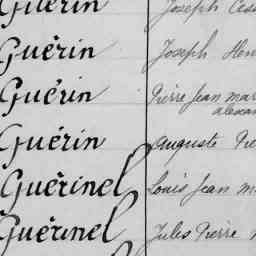 Guérin Joseph
Guérin Joseph Hen
Guérin Pierre Jean mar
alexan
Guérin Auguste Pie
Guérinel Louis Jean m
Guérinel Jules Pierre